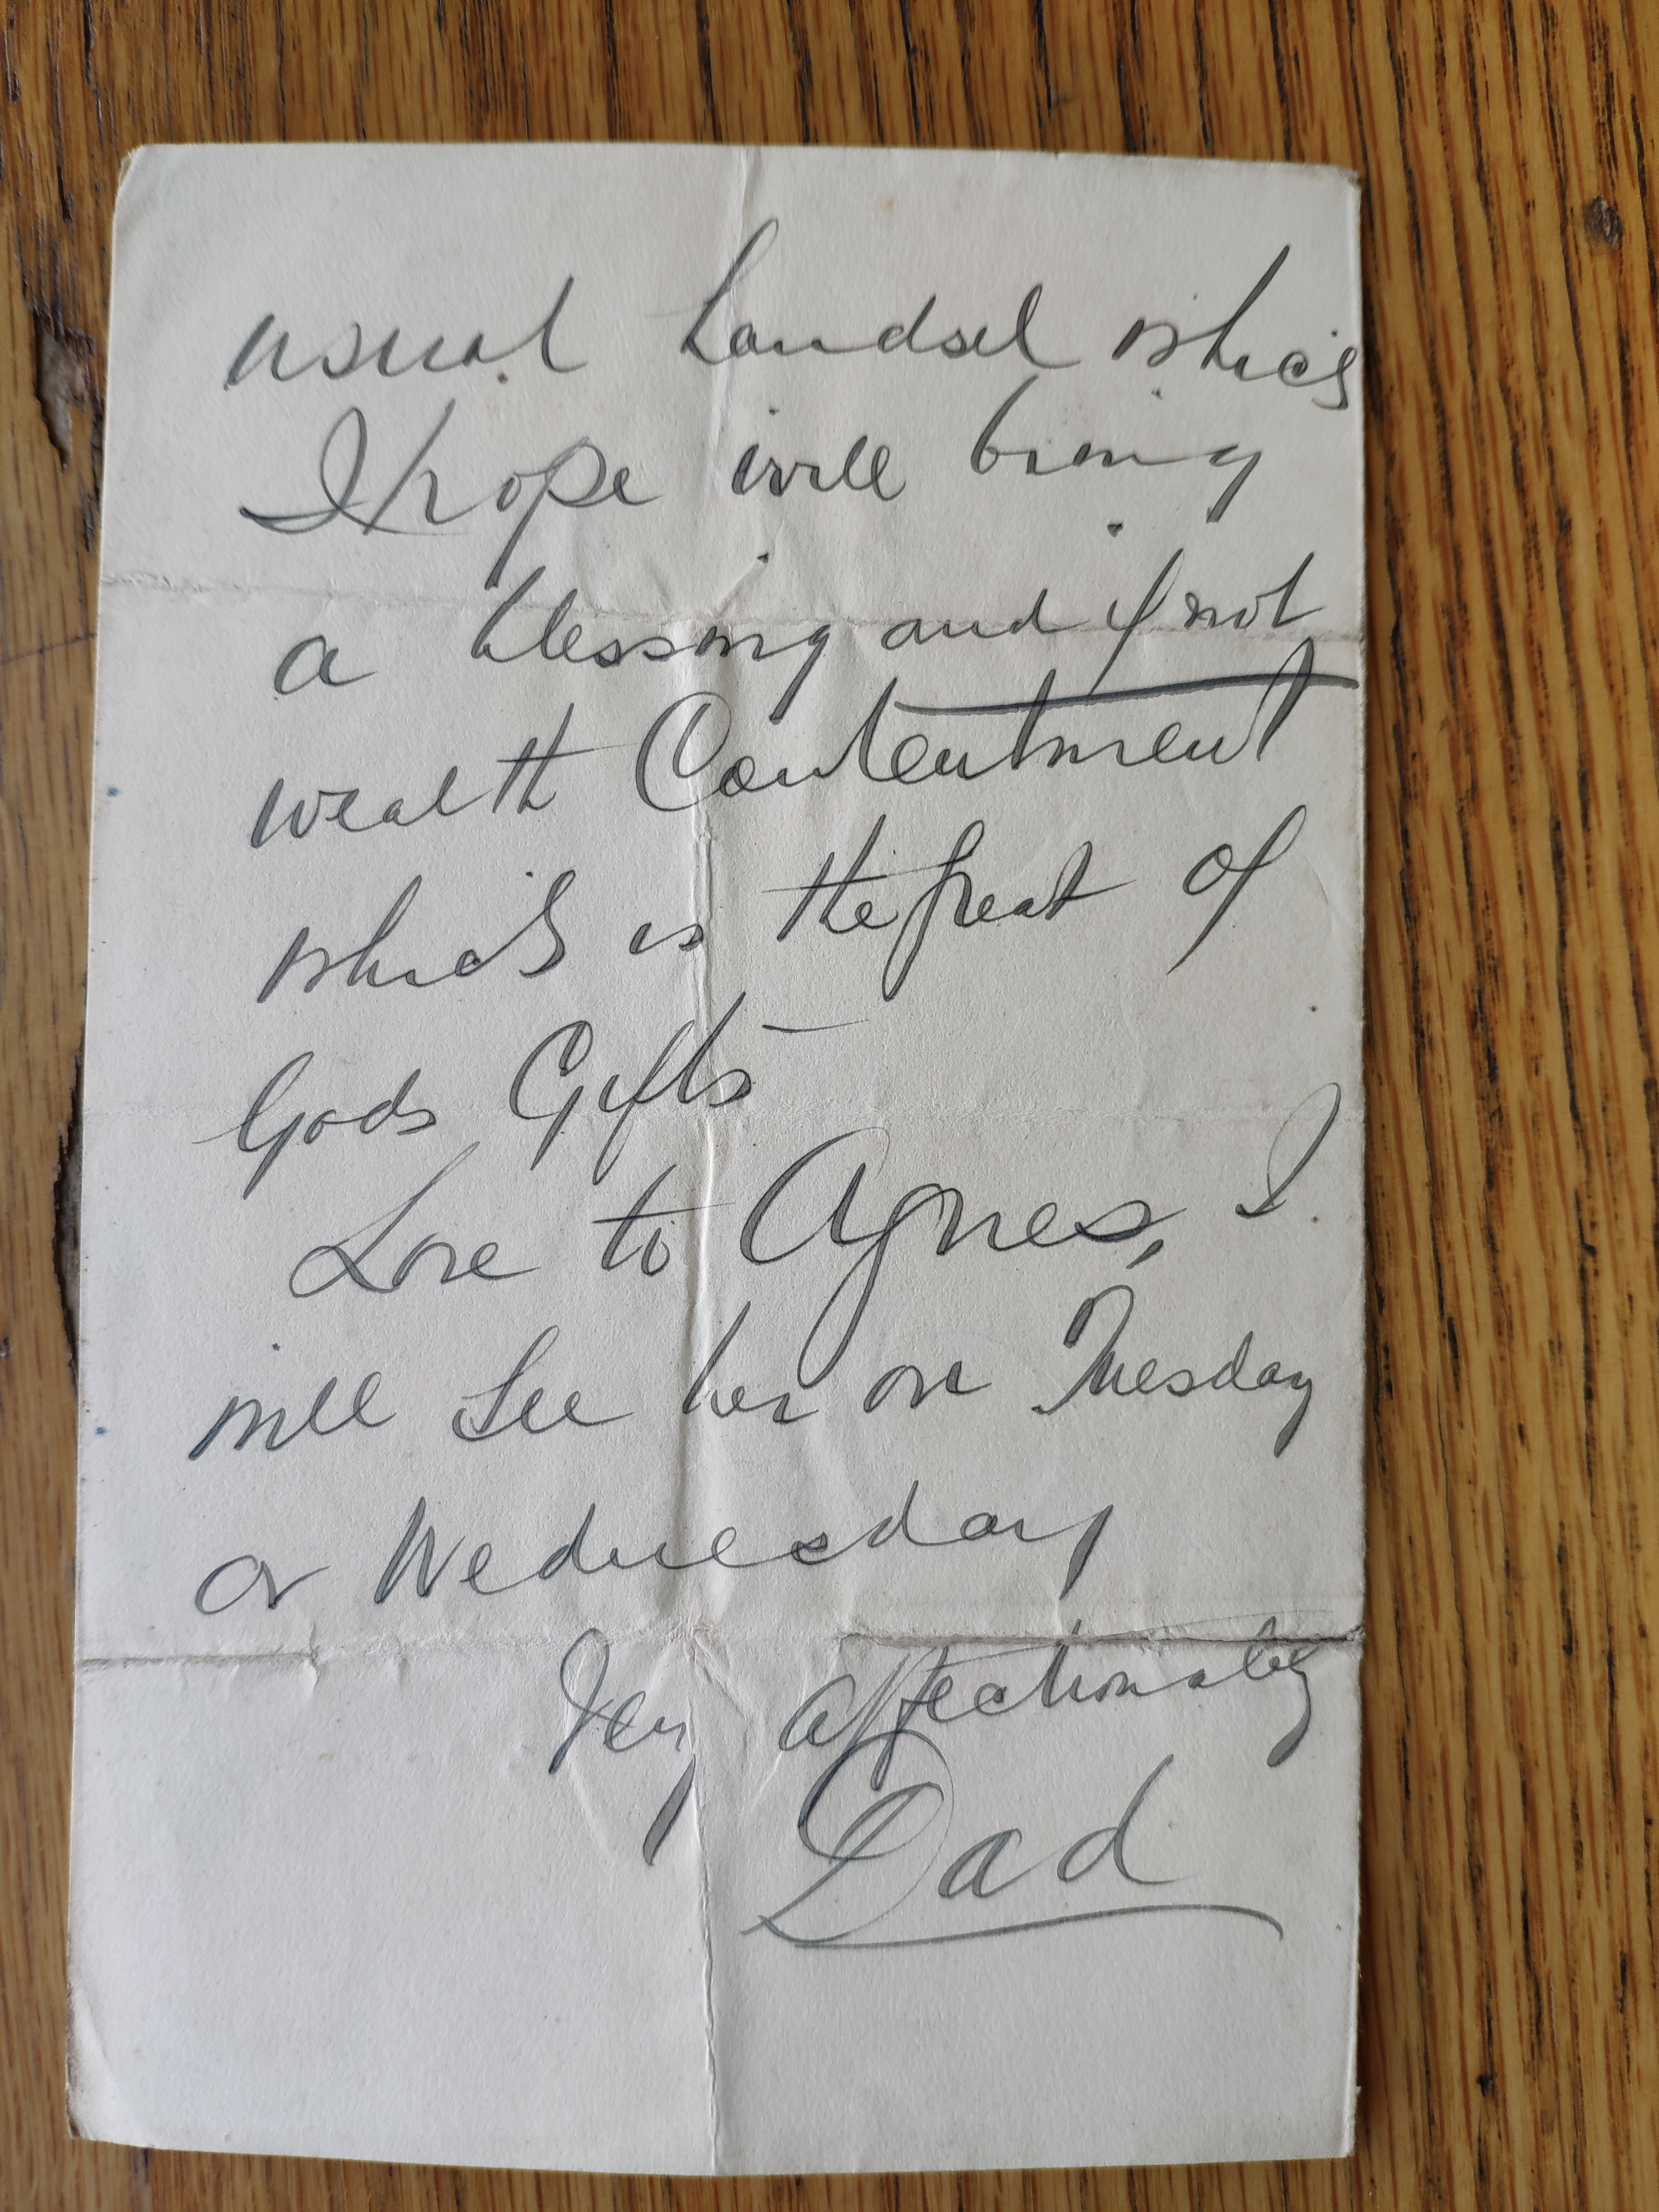 usual handsel which
I hope will bring
a blessing and if not
wealth Contentment
which is the great of
Gods Gifts
Love to Agnes, I
will see her on Tuesday
or Wednesday
Very affectionately
Dad